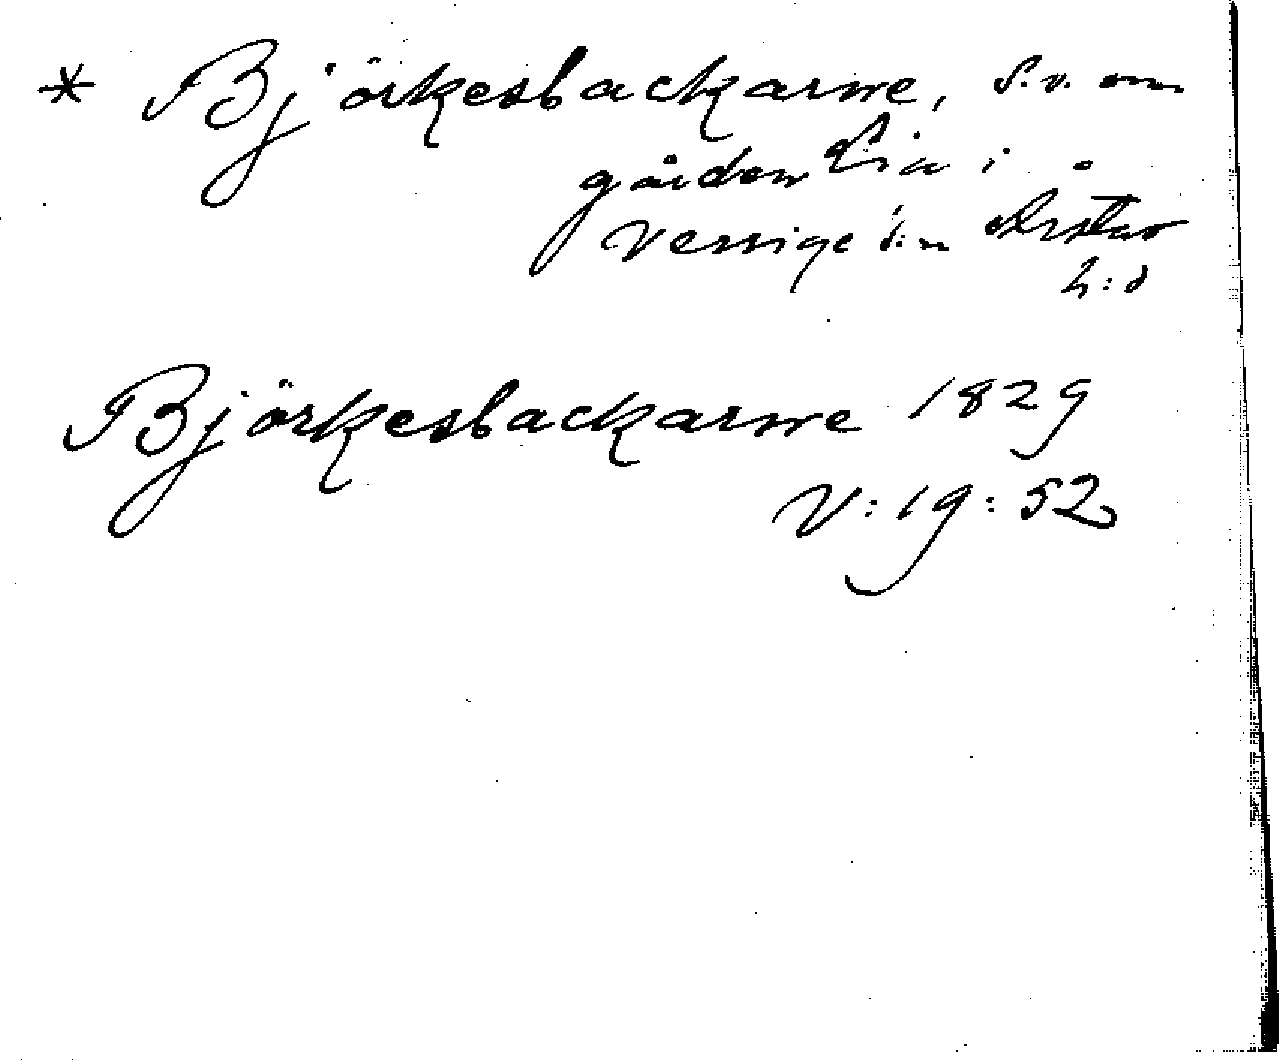 * Björkesbackarne, S.v. om
gården Lia i
Vessige s:n Årstad
h:d
Björkesbackarne 1829
V:19:52